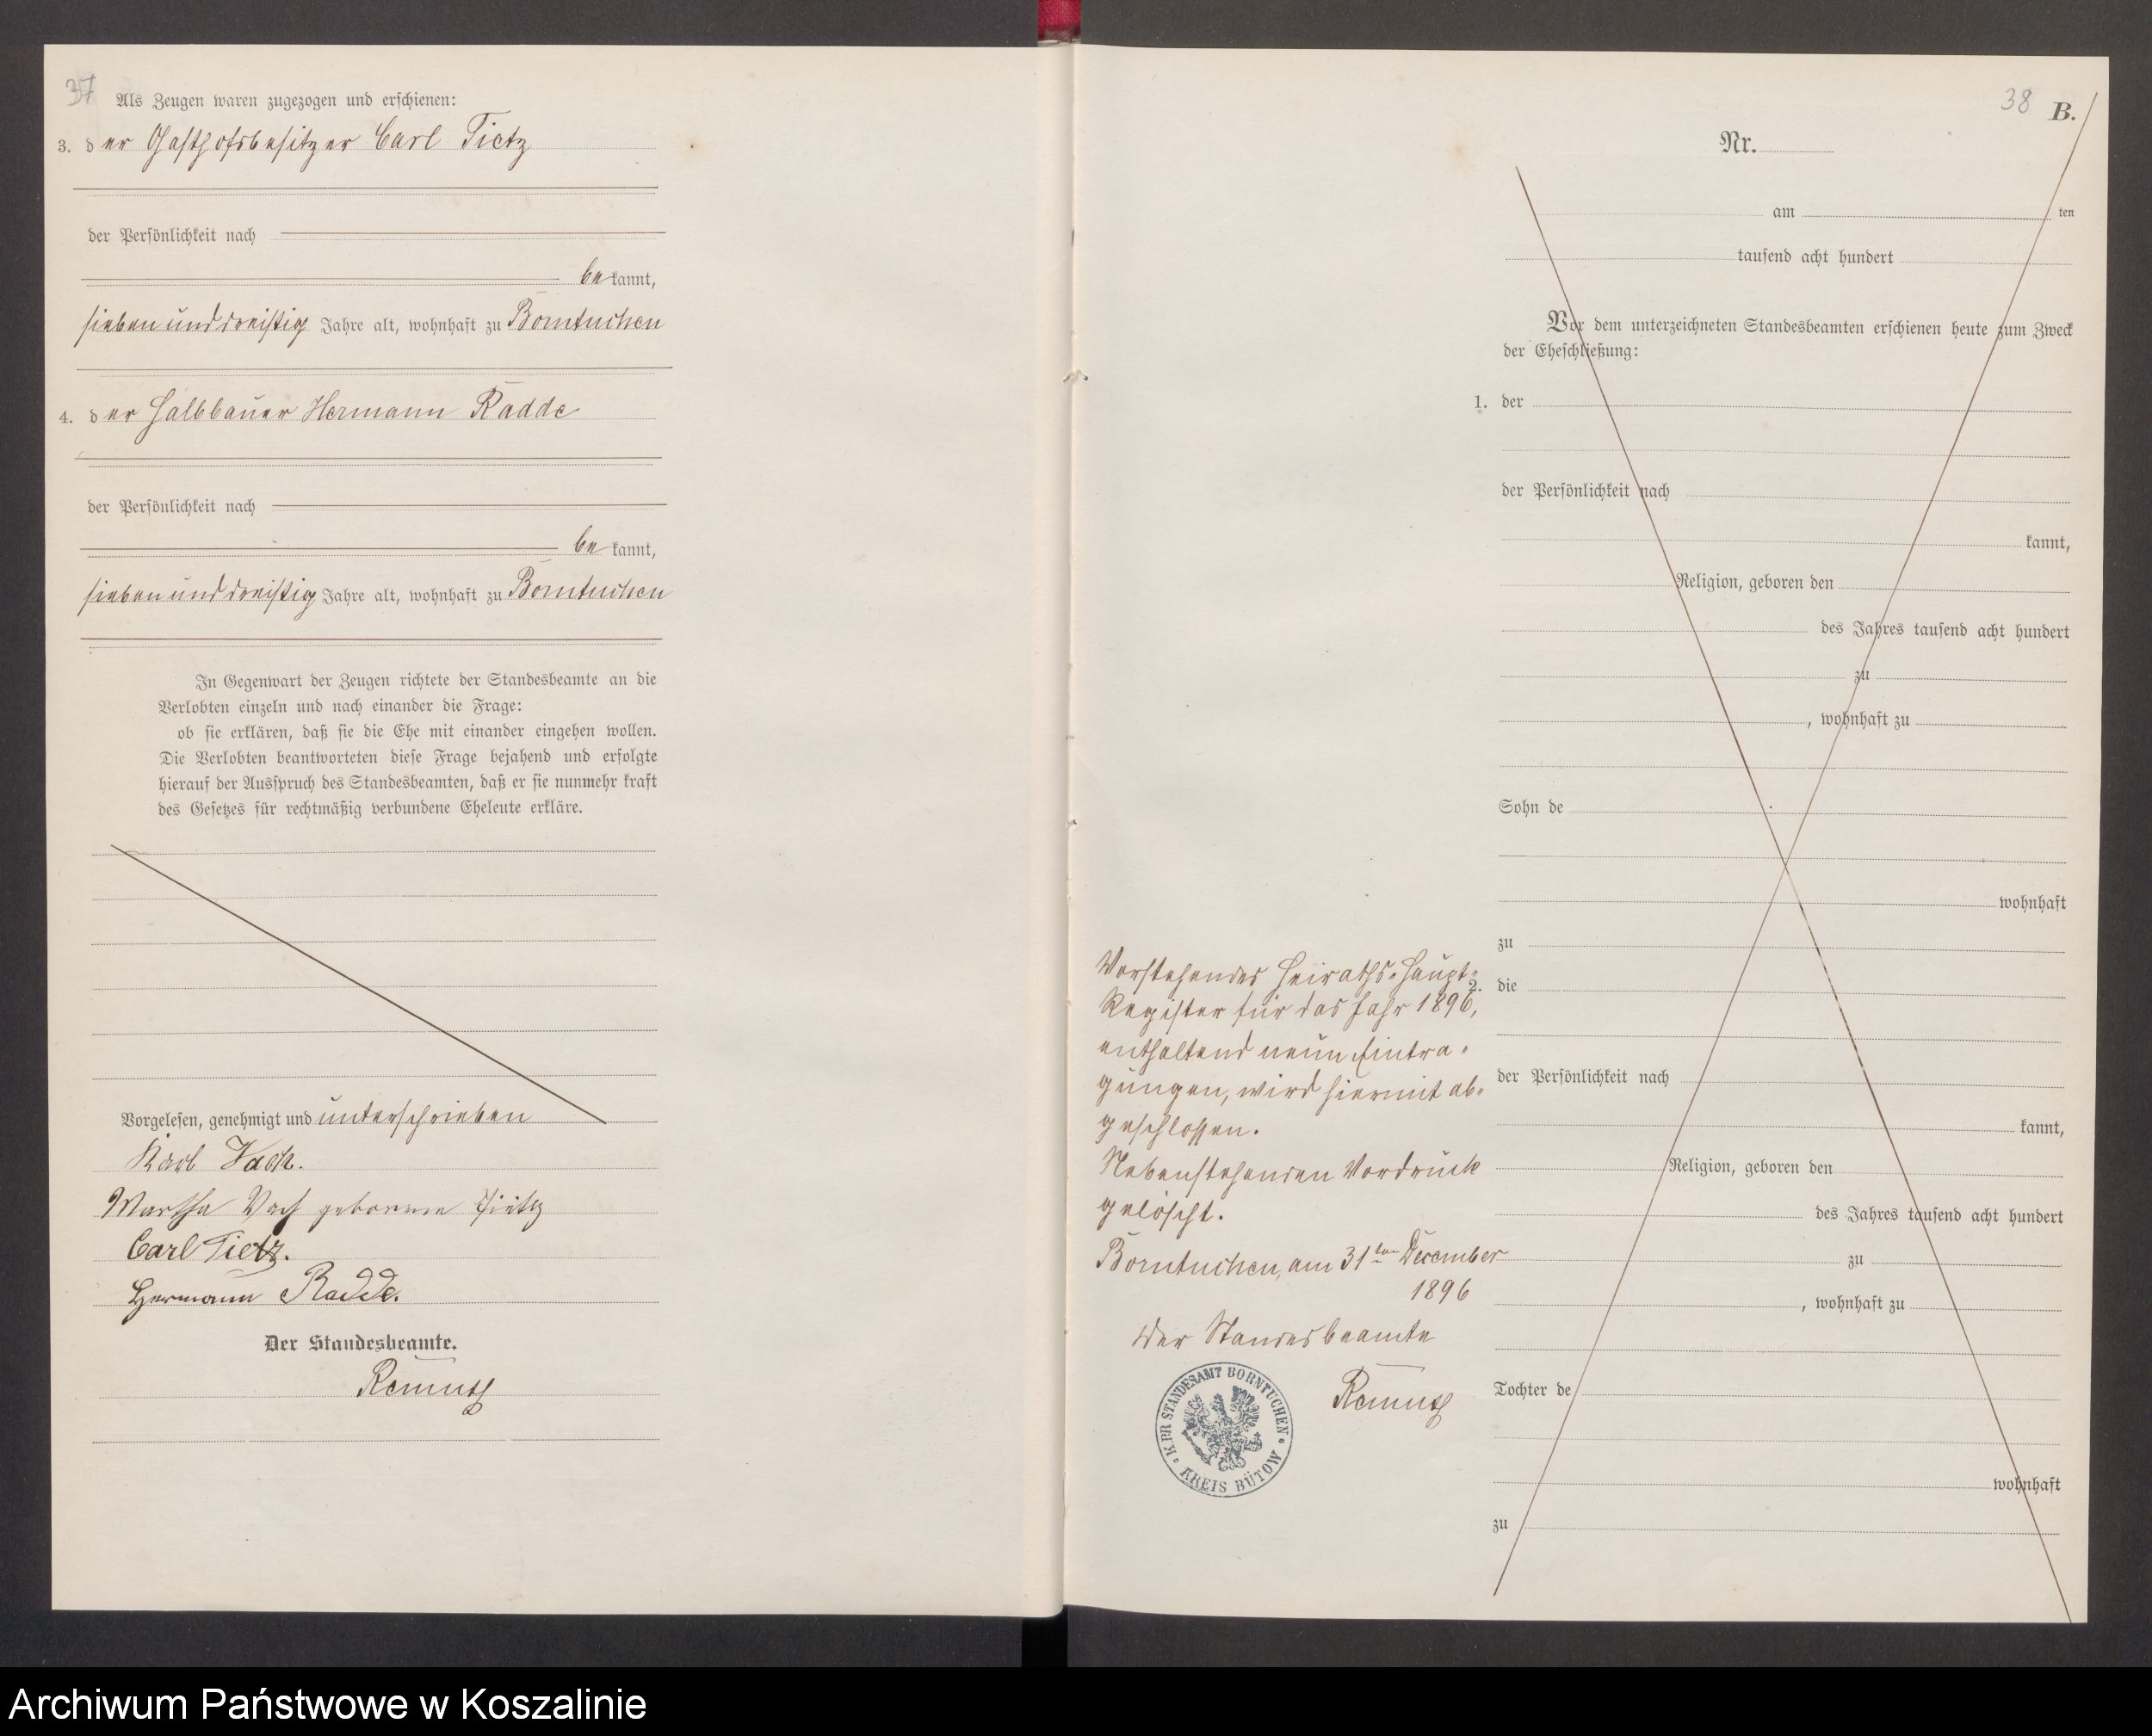 37
Als Zeugen waren zugezogen und erschienen:
3. der Gasthofsbesitzer Carl Tietz
der Persönlichkeit nach
bekannt,
siebenunddreißig Jahre alt, wohnhaft zu Borntuchen
4. der Halbbauer Hermann Radde
der Persönlichkeit nach
bekannt,
siebenunddreißig Jahre alt, wohnhaft zu Borntuchen
In Gegenwart der Zeugen richtete der Standesbeamte an die
Verlobten einzeln und nach einander die Frage:
ob sie erklären, daß sie die Ehe mit einander eingehen wollen.
Die Verlobten beantworteten diese Frage bejahend und erfolgte
hierauf der Ausspruch des Standesbeamten, daß er sie nunmehr kraft
des Gesetzes für rechtmäßig verbundene Eheleute erkläre.
Vorgelesen, genehmigt und unterschrieben
Karl Vach.
Martha Vach geborene Tietz
Carl Tietz.
Hermann Radde.
Der Standesbeamte.
Remus
38 B.
Nr.
am ten
tausend acht hundert
Vor dem unterzeichneten Standesbeamten erschienen heute zum Zweck
der Eheschließung:
1. der
der Persönlichkeit nach
kannt,
Religion, geboren den
des Jahres tausend acht hundert
zu
, wohnhaft zu
Sohn de
wohnhaft
zu
2. die
der Persönlichkeit nach
kannt,
Religion, geboren den
des Jahres tausend acht hundert
zu
, wohnhaft zu
Tochter de
wohnhaft
zu
Vorstehendes Heiraths-Haupt-
Register für das Jahr 1896,
enthaltend neun Eintra-
gungen, wird hiermit ab-
geschlossen.
Nebenstehenden Vordruck
gelöscht.
Borntuchen, am 31ten December
1896
Der Standesbeamte
Remus
K. PR. STANDESAMT BORNTUCHEN
KREIS BÜTOW
Archiwum Państwowe w Koszalinie